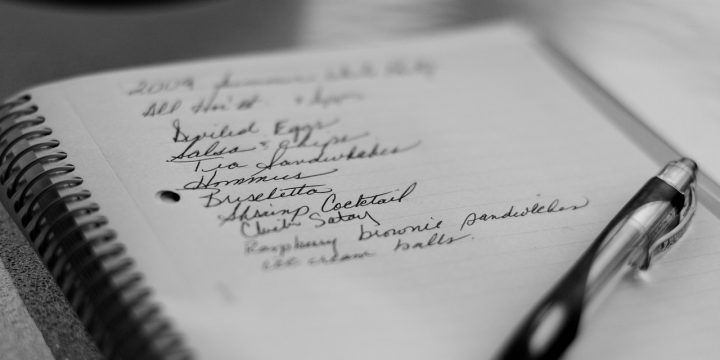 2009 Summer White Party
All Hor's
Deviled Eggs
Salsa & Chips
Tea Sandwiches
Hommus
Brushetta
Shrimp Cocktail
Satay
Raspbury brownie sandwiches
ice cream balls.